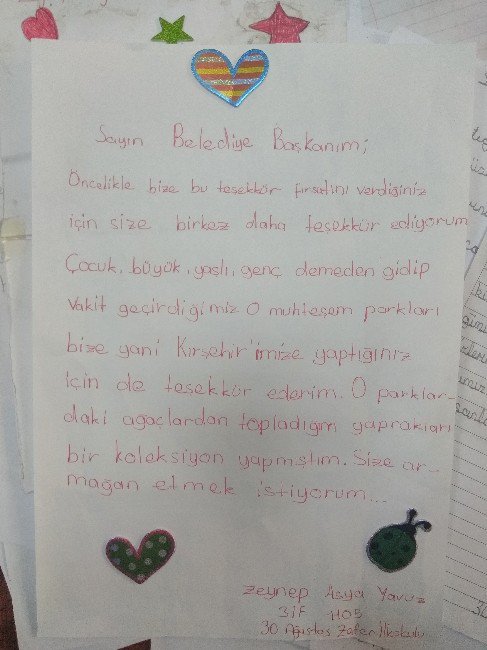 Sayın Belediye Başkanım;
Öncelikle bize bu teşekkür fırsatını verdiğiniz
için size birkez daha teşekkür ediyorum
Çocuk, büyük, yaşlı, genç demeden gidip
vakit geçirdiğimiz o muhteşem parkları
bize yani Kırşehir'imize yaptığınız
için de teşekkür ederim. O parklar-
daki ağaçlardan topladığım yaprakları
bir koleksiyon yapmştım. Size ar-
mağan etmek istiyorum...
Zeynep Asya Yavuz
3/F 1105
30 Ağustos Zafer İlkokulu